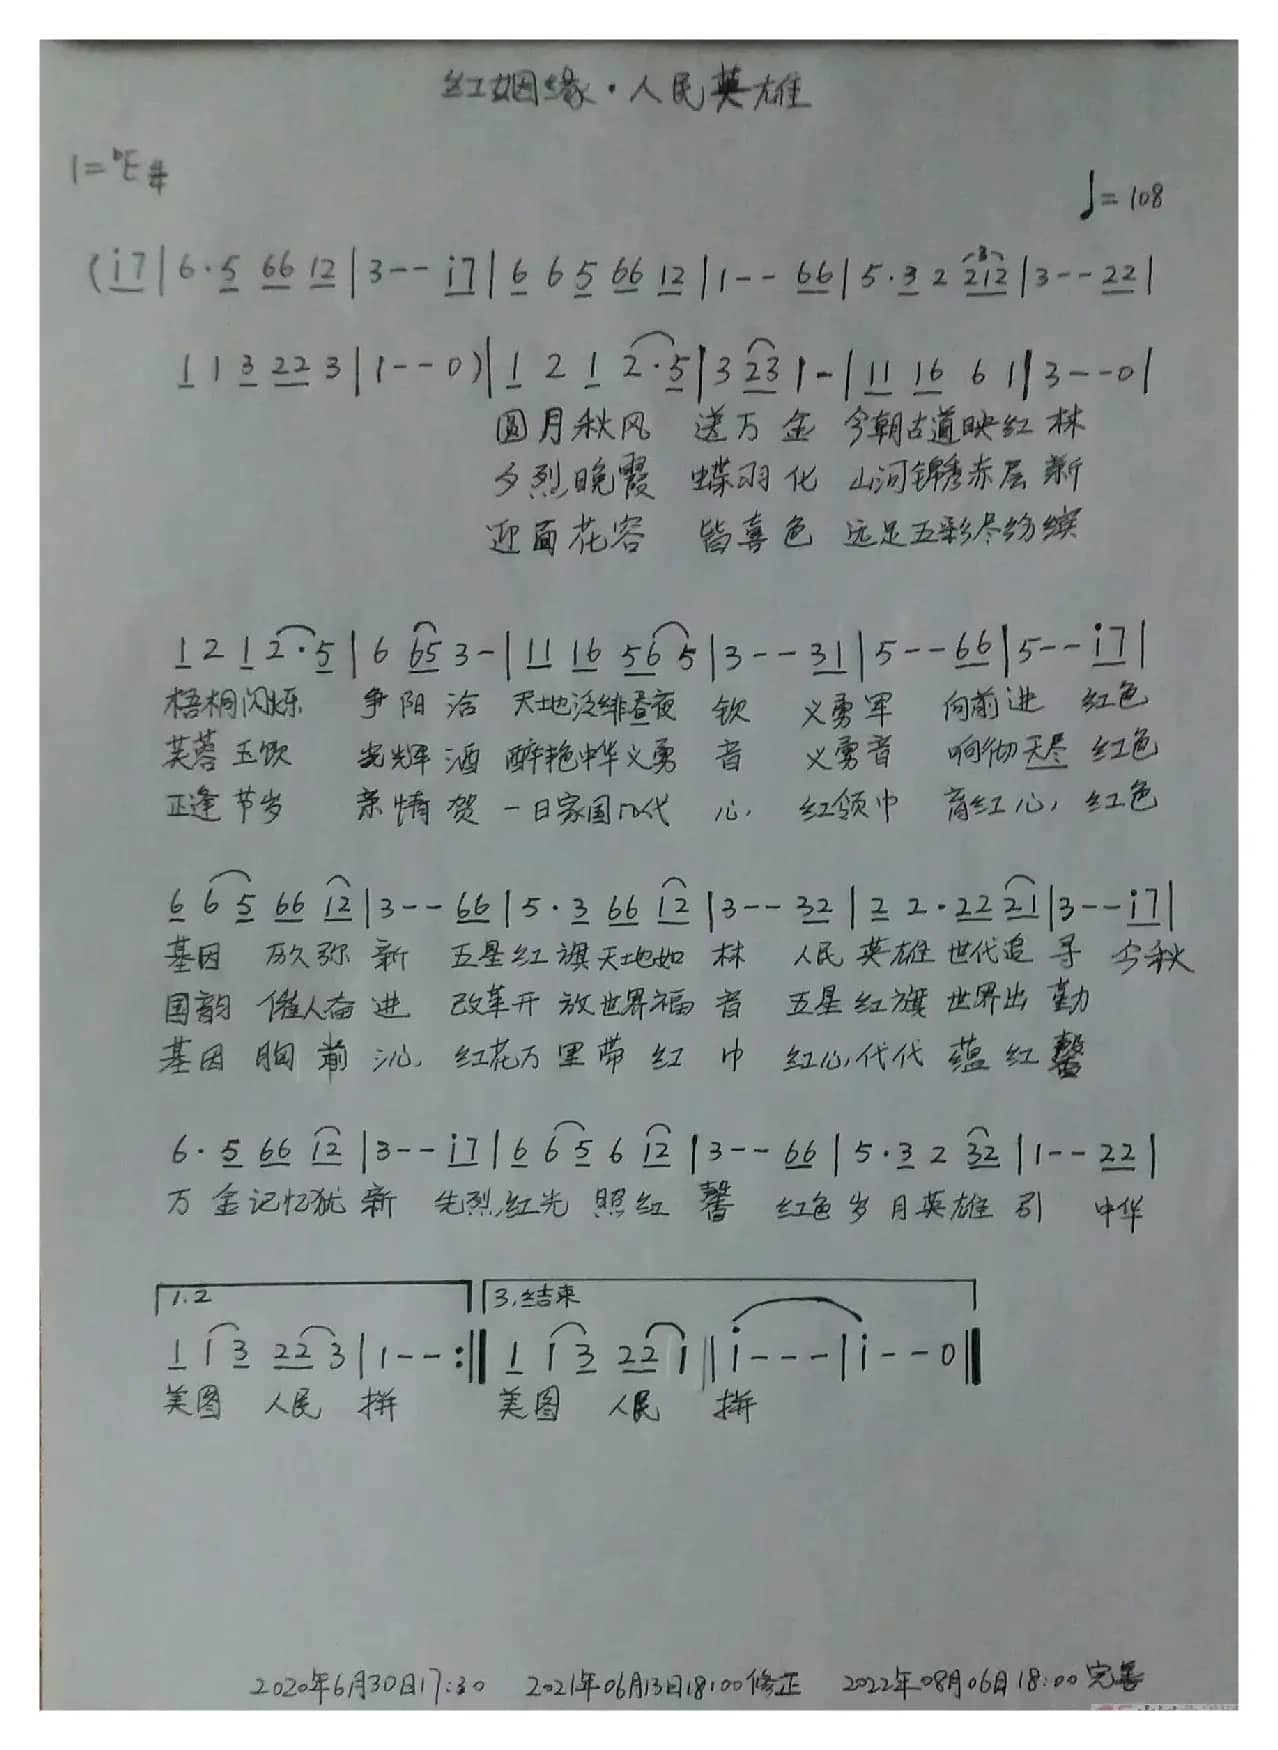 红姻缘·人民英雄
1=♭E 4/4
♩=108
(i7|6·5 66 12|3--i7|6 6 5 66 12|1--66|5·3 2 212|3--22|
1 1 3 22 3|1--0)|1 2 1 2·5|3 23 1-|11 16 6 1|3--0|
圆月秋风 送万金 今朝古道映红林
夕烈晚霞 蝶羽化 山河锦秀赤层新
迎面花容 皆喜色 远足五彩尽纷缤
1 2 1 2·5|6 65 3-|11 16 56 5|3--31|5--66|5--i7|
梧桐闪烁 争阳洽 天地泛绯昼夜钦 义勇军 向前进 红色
芙蓉玉饮 光辉酒 醉艳中华义勇音 义勇音 响彻天尽 红色
正逢节岁 亲情贺 一日家国几代心, 红领巾 育红心, 红色
6 6 5 66 12|3--66|5·3 66 12|3--32|2 2·22 21|3--i7|
基因 历久弥新 五星红旗天地如林 人民英雄世代追寻 今秋
国韵 催人奋进 改革开放世界福音 五星红旗世界出勤
基因 胸前沁, 红花万里带红巾 红心,代代蕴红馨
6·5 66 12|3--i7|6 6 5 6 12|3--66|5·3 2 32|1--22|
万金记忆犹新 先烈,红光照红馨 红色岁月英雄引 中华
1.2 3.结束
1 1 3 22 3|1--:‖ 1 1 3 22 1‖i---|i--0‖
美图 人民 拼 美图 人民 拼
2020年6月30日17:30 2021年06月13日18:00修正 2022年08月06日18:00完善